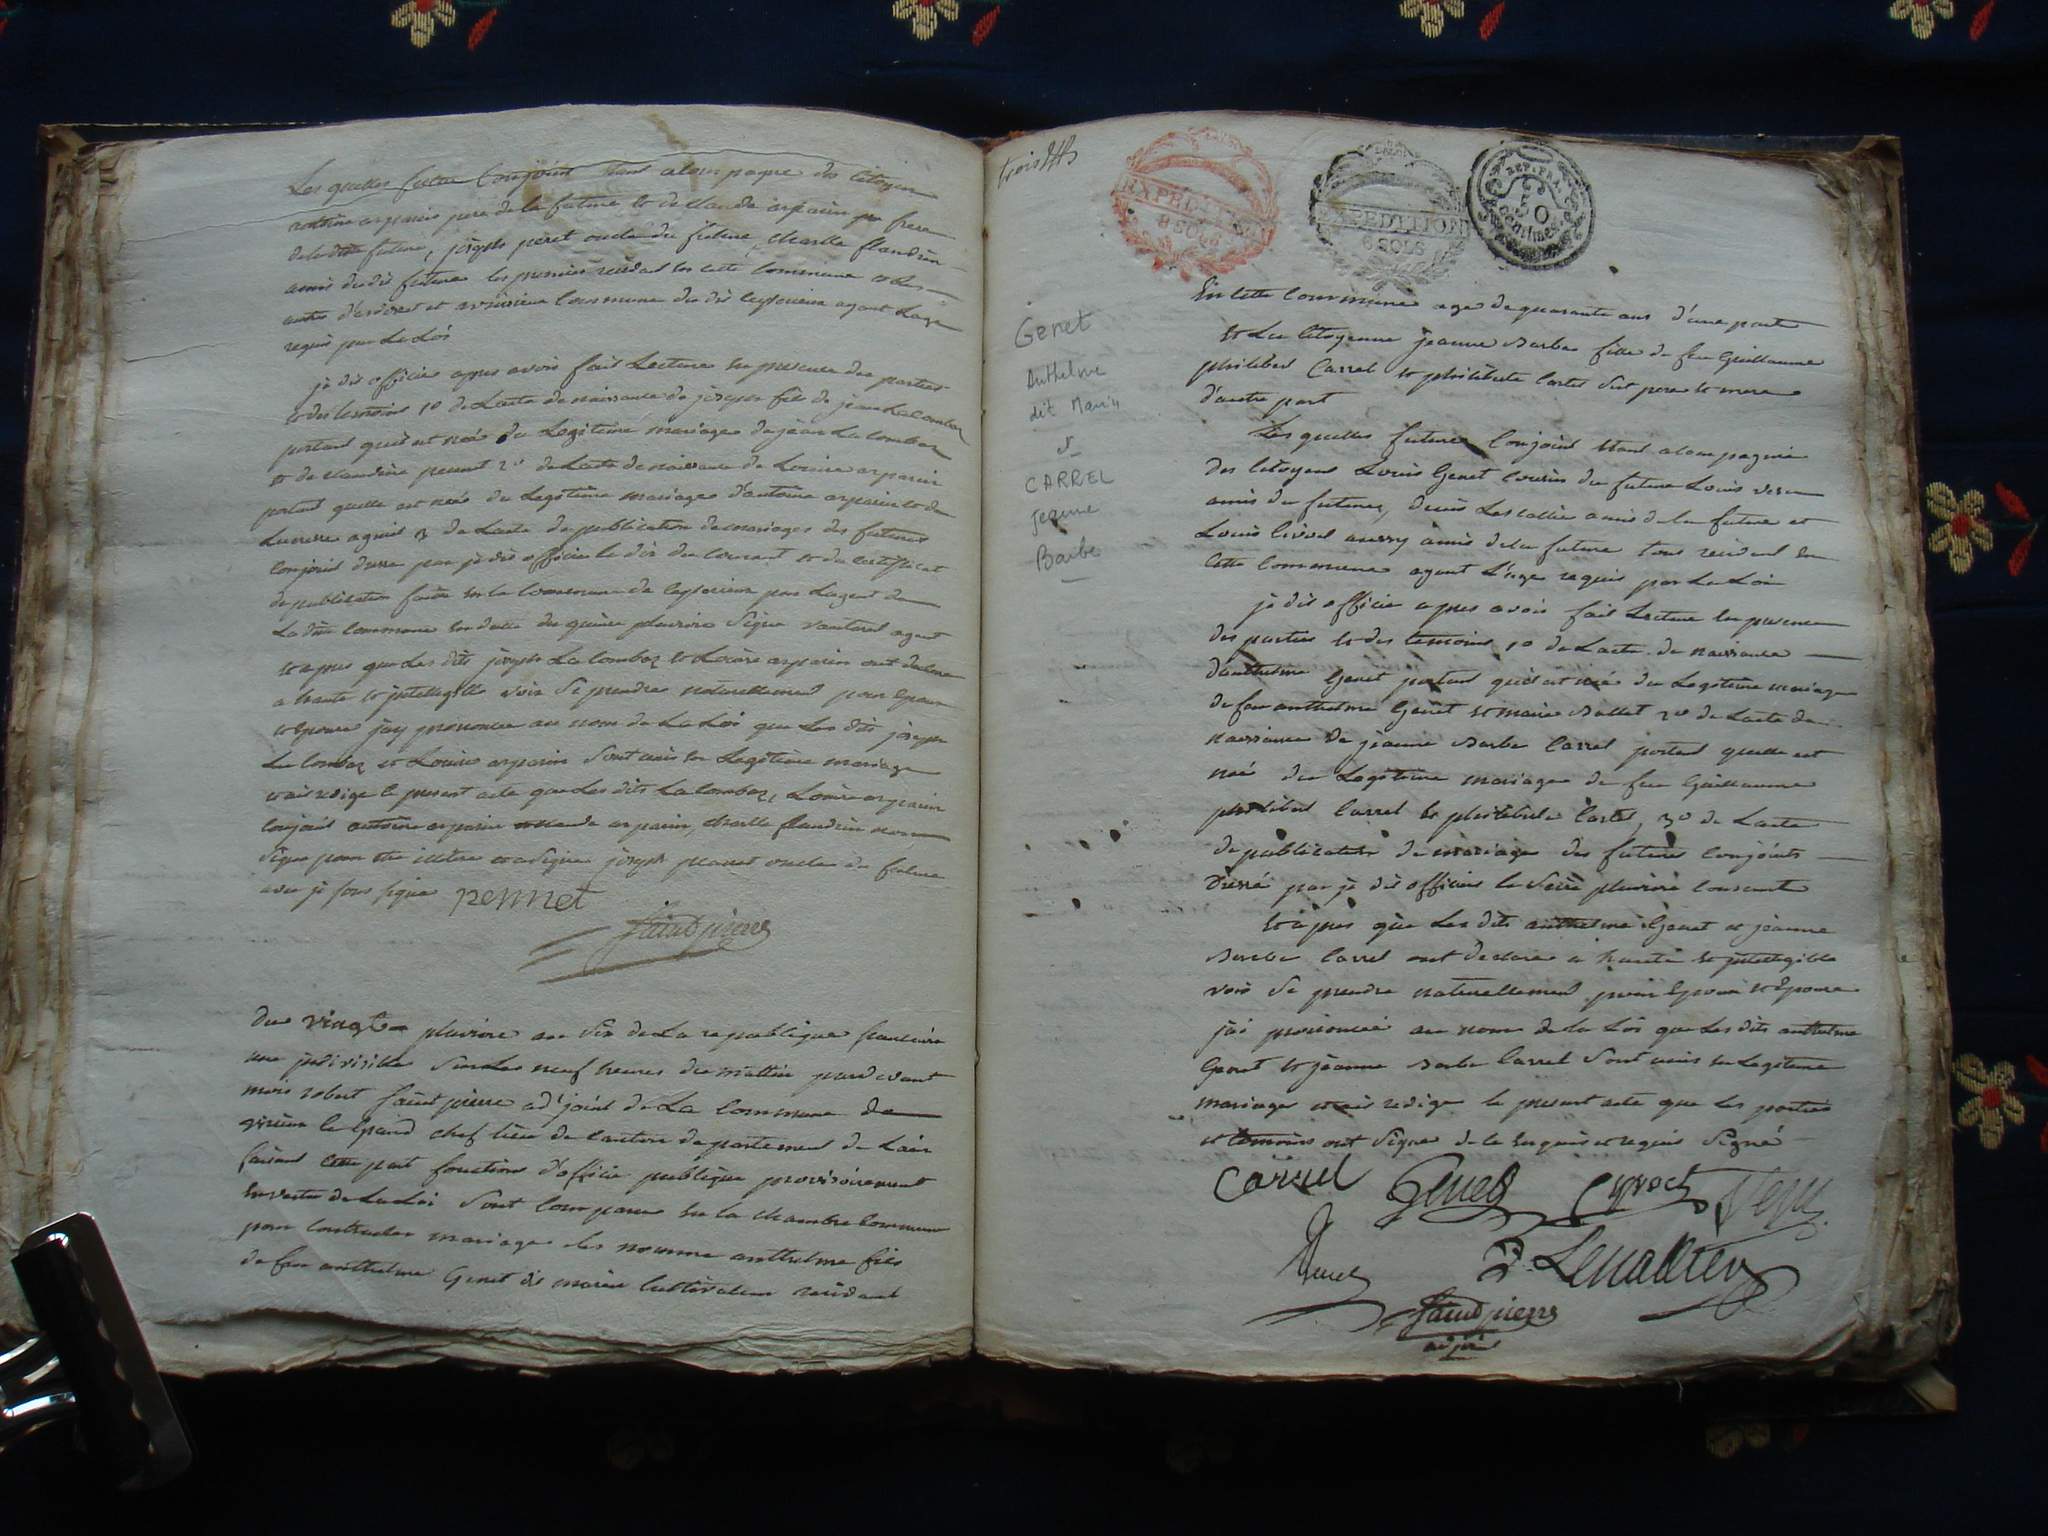 Les quelles futur Conjoint étant acompagne des Citoyen
antoine arparin pere de la future et de claude arparin frere
de la dite future, joseph peret oncle du future, charle flandrin
amis du dit future les premier residant en cette Commune et les
autres d'andert et ayant Lage
requis par La Loi
je dit officie apres avoir fait Lecture en presence des parties
et des temoins 1o de Lacte de naissance de joseph fils de jean Lacombaz
portant quil est née du Legitime mariage de jean Lacombaz
et de claudine 2o de Lacte de naissance de Louise arparin
portant quelle est née du Legitime mariage d'antoine arparin et de
3 de Lacte de publication de mariage des futures
conjoint dresse par je dit officie le dix du courant et du certificat
de publication faite en la Commune de par Lagent de
La dite commune en datte du quinze pluviose Signe agent
et apres que Les dits joseph La combaz et Louise arparin ont declare
a haute et jntellegible voix se prendre naturellement pour Epoux
et Epouse jay prononce au nom de La Loi que Les dits joseph
La combaz et Louise arparin sont unis en Legitime mariage
et ait redige le present acte que Les dits La combaz, Louise arparin
conjoint antoine arparin claude arparin, charle flandrin non
signe pour etre et a signe joseph oncle du future
avec je sous signe pernnet
saintpierre
du vingt pluviose an six de La republique francaise
une jndivisible sur Les neuf heures du mattin pardevant
mois robert saint pierre ad'joint de La Commune de
virieu le grand chef lieu de canton departement de Lain
faisant cette part fonctions d'officie publique provisoirement
en vertu de La Loi sont comparu en la chambre Commune
pour contracter mariage les nomme anthelme fils
de feu anthelme Genet dit marin cultivateur residant
trois
EXPEDITION
8 SOLS
EXPEDITION
6 SOLS
REP. FRA.
50
centimes
Genet
Anthelme
dit Marin
&
CARREL
Jeanne
Barbe
En cette Commune age de quarante ans d'une part
et La Citoyenne jeanne Barbe fille de feu Guillaume
philibert Carrel et philiberte Cortet ses pere et mere
d'autre part
Les quelles future Conjoint étant acompagnie
des Citoyens Louis Genet cousin du future Louis
amis du future, denis amis de la future et
Louis aussy amis de la future tous residant en
cette Commune ayant L'age requis par La Loi
je dit officie apres avoir fait Lecture en presence
des parties et des temoins 1o de Lacte de naissance
d'anthelme Genet portant quil est née du Legitime mariage
de feu anthelme Genet et marie Ballet 2o de Lacte de
naissance de jeanne Barbe Carrel portant quelle est
née du Legitime mariage de feu Guillaume
philibert Carrel et philiberte Cortet, 3o de Lacte
de publication de mariage des futures conjoints
Dressé par je dit officie le seize pluviose courant
et apres que Les dits anthelme Genet et jeanne
Barbe Carrel ont declare a haute et jntelligible
voix se prendre naturellement pour Epoux et Epouse
j'ai prononcé au nom de la Loi que Les dits anthelme
Genet et jeanne Barbe Carrel sont unis en Legitime
mariage et ait redige le present acte que Les parties
et temoins ont signe de ce enquis et requis signé
Carrel Genet
Genet
saintpierre
adjoint